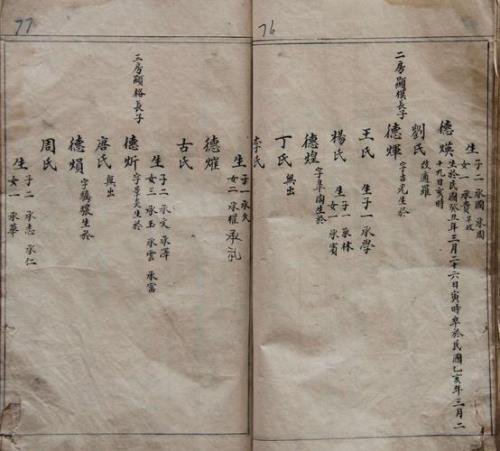 76
生 子二 承國 承周
女一 承貴 早故
德煐 生於民國癸丑年三月二十六日寅時卒於民國乙亥年三月二
十九日寅時
劉氏 改適羅
二房顯模長子
德煇 字吉光生於
王氏 生子一 承學
楊氏 生 子一 承林
女一 承賓
德煌 字南生於
丁氏 無出
李氏
77
生 子一 承久
女二 承權
德燿
古氏
生 子二 承文 承澤
女三 承玉 承雲 承富
三房顯格長子
德炘 字景炎生於
唐氏 無出
德熉 字生於
周氏
生 子二 承志 承仁
女一 承華